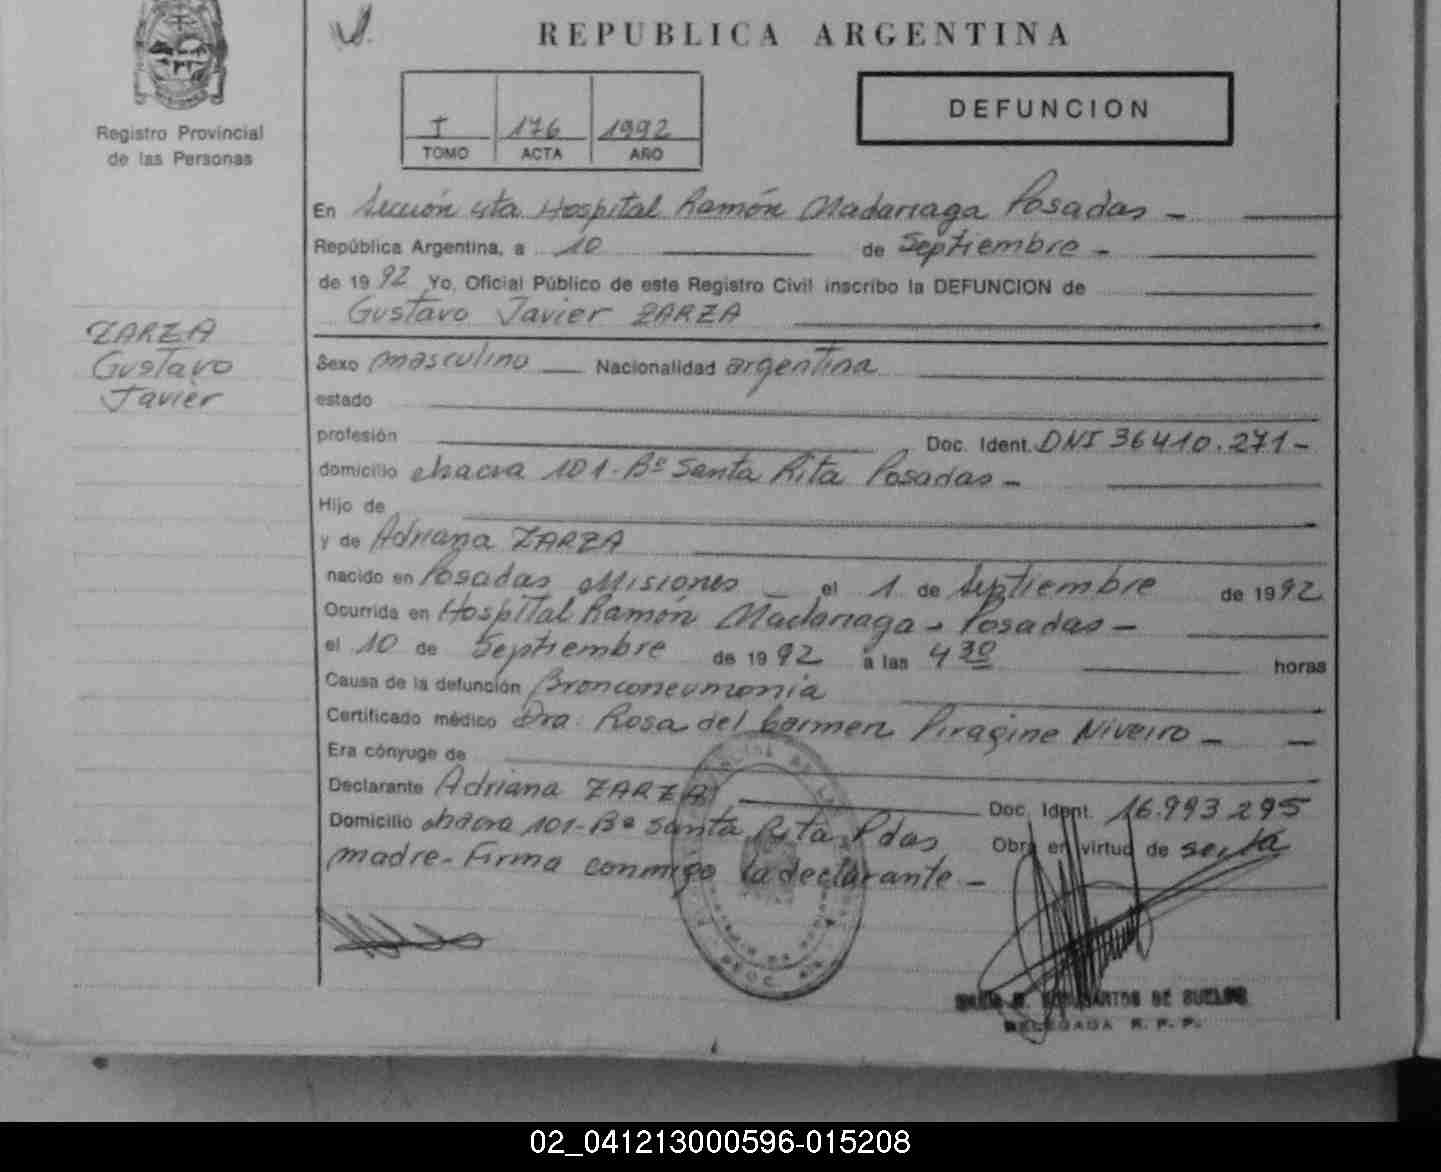 REPUBLICA ARGENTINA
Registro Provincial
de las Personas
I 176 1992
TOMO ACTA AÑO
DEFUNCION
ZARZA
Gustavo
Javier
En Sección 4ta Hospital Ramón Madariaga Posadas -
República Argentina, a 10 de Septiembre -
de 1992 Yo, Oficial Público de este Registro Civil inscribo la DEFUNCION de
Gustavo Javier ZARZA
Sexo masculino Nacionalidad argentina
estado
profesión Doc. Ident. DNI 36410.271-
domicilio chacra 101-Bº Santa Rita Posadas -
Hijo de
y de Adriana ZARZA
nacido en Posadas Misiones el 1 de Septiembre de 1992
Ocurrida en Hospital Ramón Madariaga - Posadas -
el 10 de Septiembre de 1992 a las 4 30 horas
Causa de la defunción Bronconeumonia
Certificado médico Dra. Rosa del Carmen Piragine Niveiro -
Era cónyuge de
Declarante Adriana ZARZA Doc. Ident. 16.993.295
Domicilio chacra 101-Bº Santa Rita Pdas Obra en virtud de ser la
madre- Firma conmigo la declarante -
DE SUELOS
DELEGADA R. P. P.
02_041213000596-015208